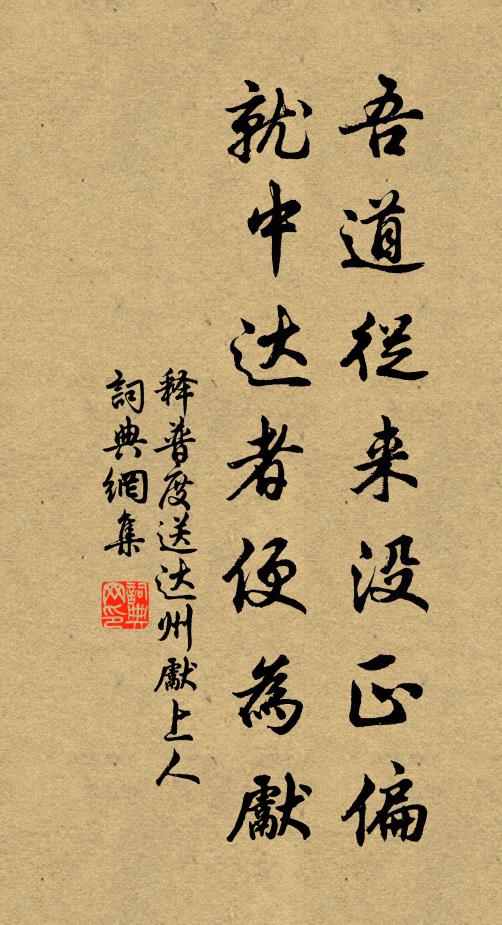 吾道從来没正偏
就中达者便為獻
释普度送达州獻上人
詞典網集
詞典
网印